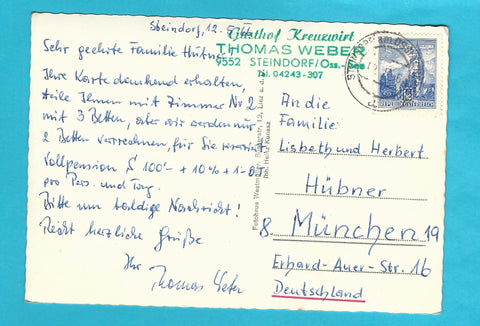 Steindorf, 12.
Gasthof Kreuzwirt
THOMAS WEBER
9552 STEINDORF/Oss.-See
Tel. 04243-307
Sehr geehrte Familie Hübner
Ihre Karte dankend erhalten,
teile Ihnen mit Zimmer Nr 2
mit 3 Betten, aber wir werden nur
2 Betten verrechnen, für Sie
Vollpension S 100'- + 10% + 1.- O.T.
pro Pers. und Tag.
Bitte um baldige Nachricht!
Recht herzliche Grüße
Ihr Thomas Weber
An die
Familie:
Lisbeth und Herbert
Hübner
8 München 19
Erhard-Auer-Str. 16
Deutschland